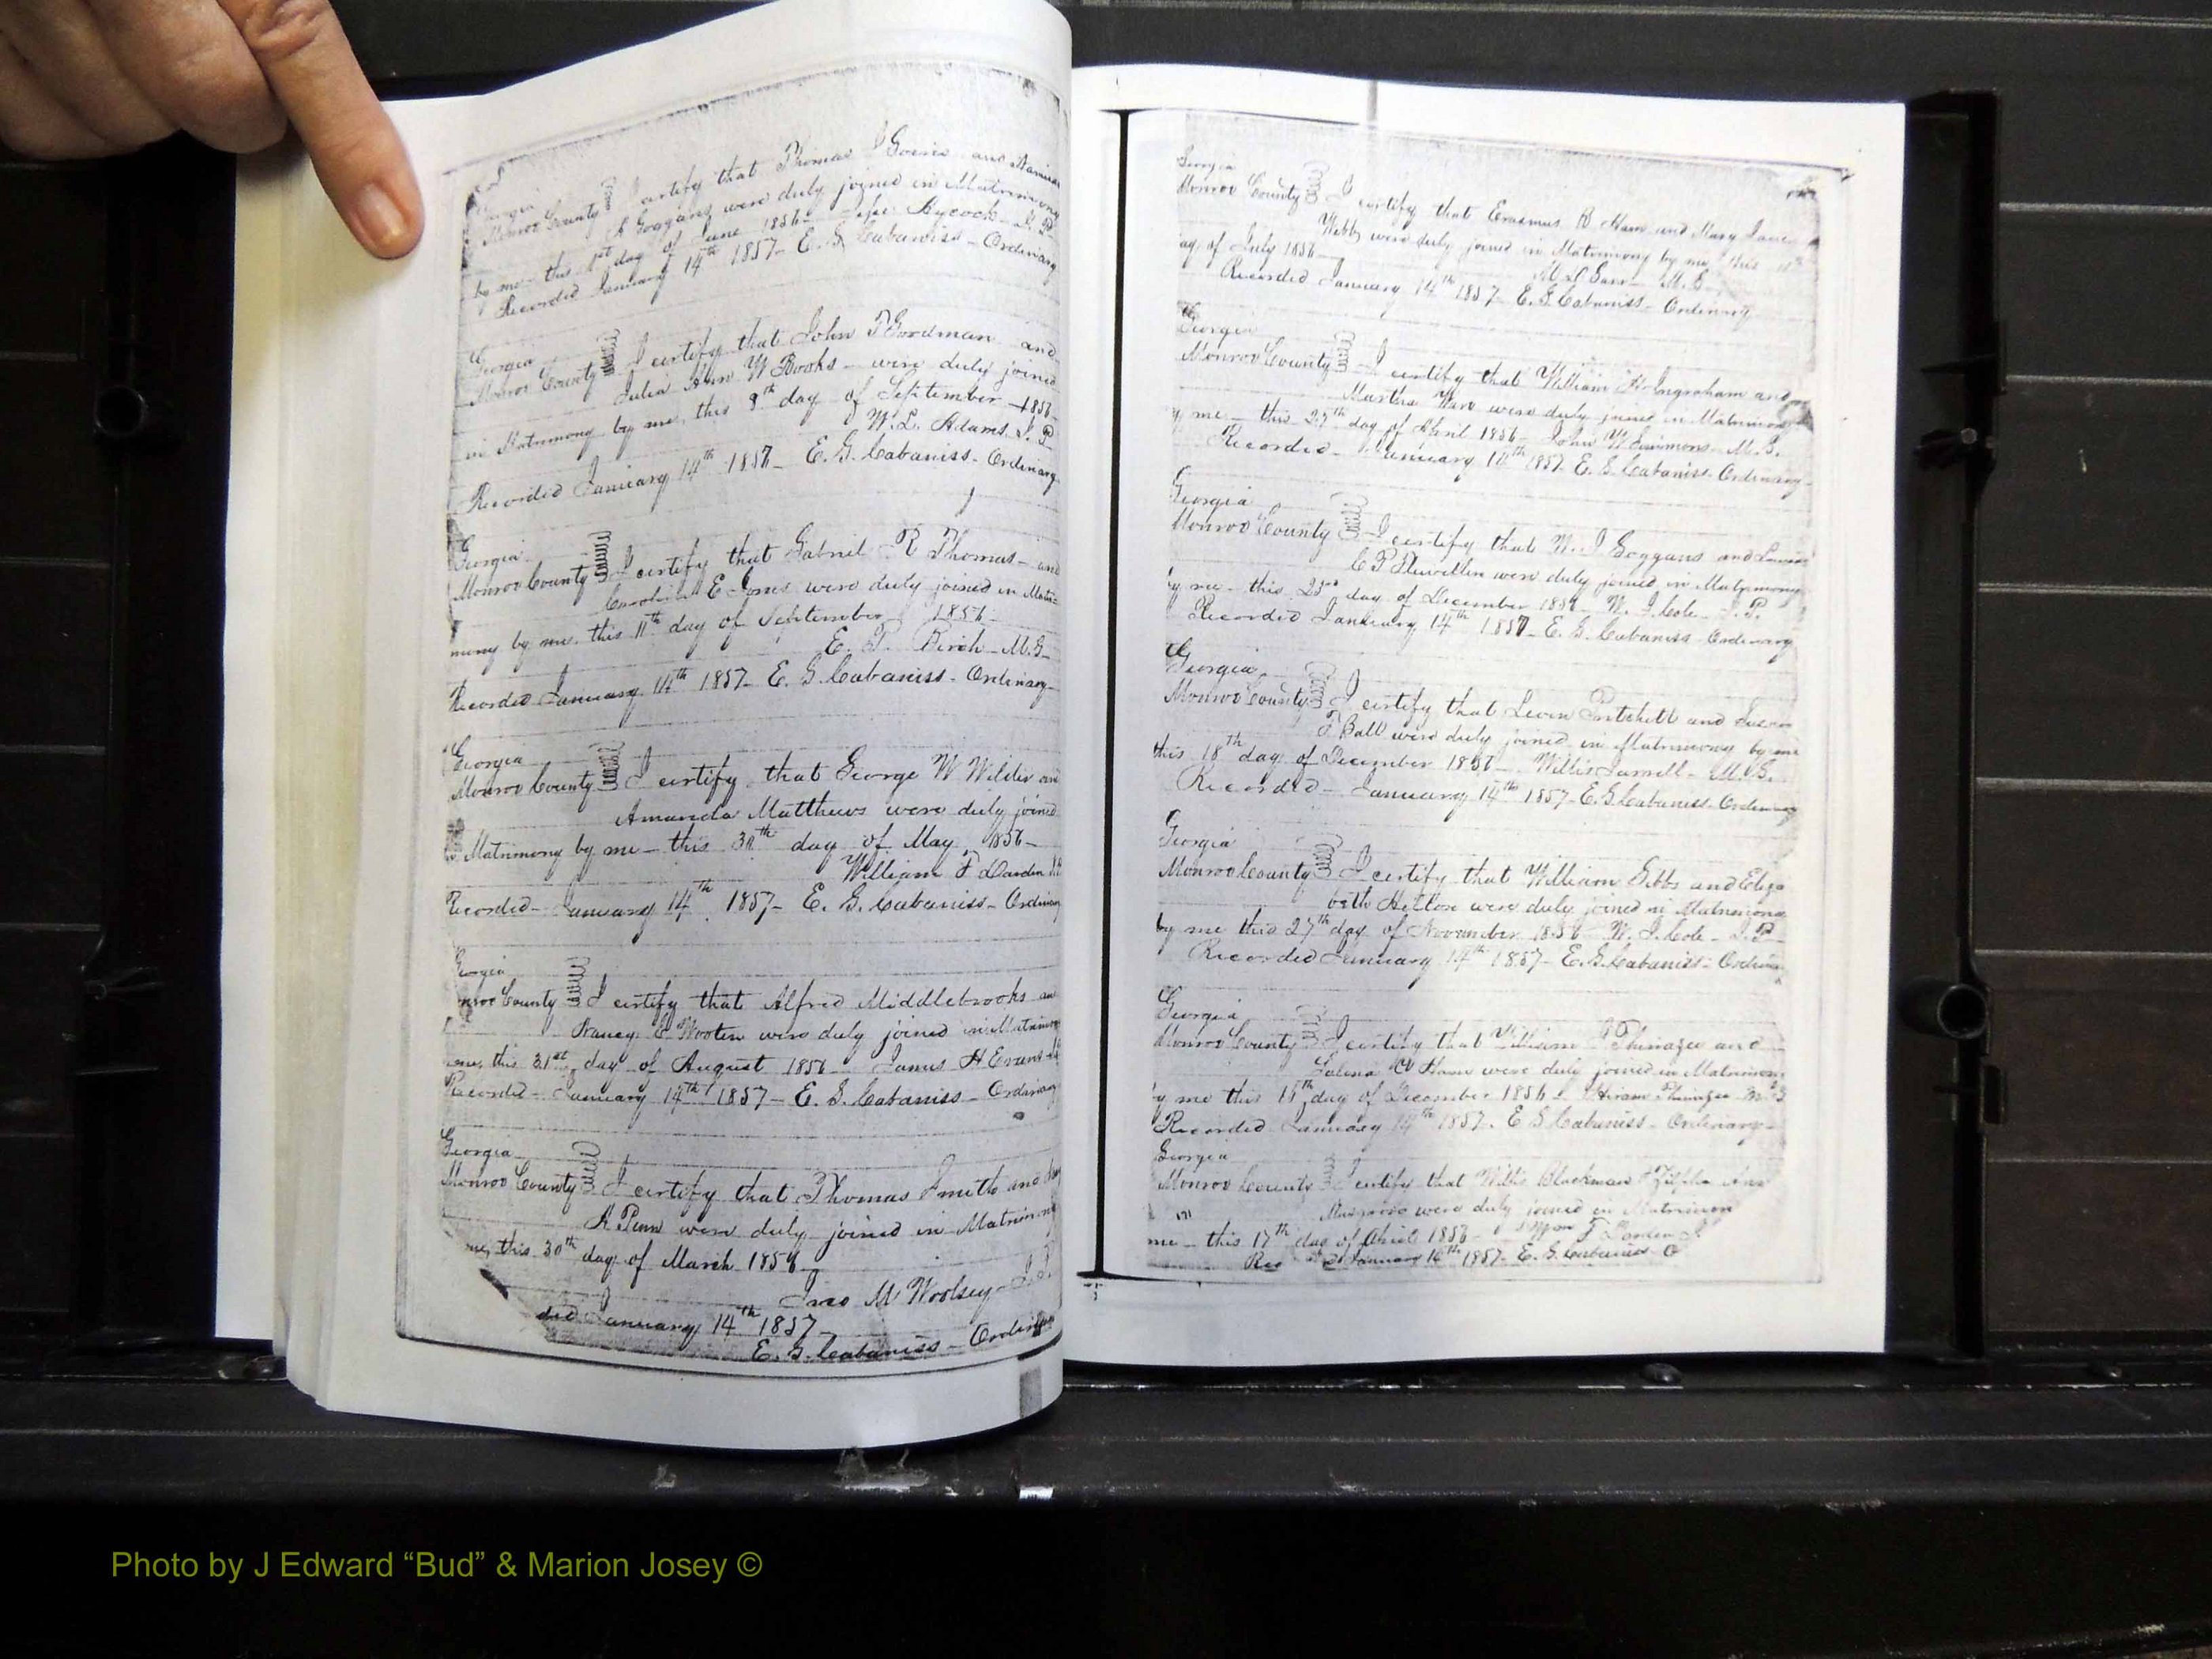 Georgia
Monroe County I certify that Thomas J Goens and
A Goggans were duly joined in Matrimony
by me this 1st day of June 1856 Aycock J. P.
Recorded January 14th 1857 E. G. Cabaniss - Ordinary
Georgia
Monroe County I certify that John T Gordman and
Julia Ann W Books were duly joined
in Matrimony by me, this 9th day of September 1856
W. L. Adams J. P.
Recorded January 14th 1857 - E. G. Cabaniss - Ordinary
Georgia
Monroe County I certify that Gabriel R Thomas and
E Jones were duly joined in Matri-
mony by me, this 11th day of September 1856
E. T. Birch M. G.
Recorded January 14th 1857 - E. G. Cabaniss - Ordinary
Georgia
Monroe County I certify that George W Wilder an
Amanda Matthews were duly joined
Matrimony by me - this 30th day of May 1856 -
William F Darden
Recorded - January 14th 1857 - E. G. Cabaniss - Ordinary
Georgia
nroe County I certify that Alfred Middlebrooks an
Nancy E Wooten were duly joined in Matrimony
me, this 31st day of August 1856 James H Evans
Recorded - January 14th 1857 - E. G. Cabaniss - Ordinary
Georgia
Monroe County I certify that Thomas Smith and
A Penn were duly joined in Matrimony
me, this 30th day of March 1856
Jno M Woolsey J. P.
ded January 14th 1857
E. G. Cabaniss - Ordinary
Georgia
Monroe County I certify that Erasmus R Ham and Mary Jane
Webb were duly joined in Matrimony by me, this
ay of July 1856
M. G.
Recorded January 14th 1857 E. G. Cabaniss - Ordinary
Georgia
Monroe County I certify that William H Ingraham and
Martha Ware were duly joined in Matrimony
y me - this 27th day of April 1856 - John W Simmons - M. G.
Recorded - January 14th 1857 E. G. Cabaniss - Ordinary
Georgia
Monroe County I certify that W. J Goggans and
C P Flewellin were duly joined in Matrimony
by me - this 23rd day of December 1856 - W. J. Cole - J. P.
Recorded January 14th 1857 - E. G. Cabaniss - Ordinary
Georgia
Monroe County I certify that Levin Pritchett and Susan
F Ball were duly joined in Matrimony by me
this 18th day of December 1856 - Willis Jarrell - M. G.
Recorded - January 14th 1857 - E. G. Cabaniss - Ordinary
Georgia
Monroe County I certify that William Gibbs and Eliza
beth Helton were duly joined in Matrimony
by me this 27th day of November 1856 W. J. Cole - J. P.
Recorded January 14th 1857 - E. G. Cabaniss - Ordinary
Georgia
Monroe County I certify that William Phinazee and
Ham were duly joined in Matrimony
by me this 18th day of December 1856 Hiram Phinazee M. G
Recorded January 14th 1857. E G Cabaniss - Ordinary -
Georgia
Monroe County I certify that Willis Blackman & Zilpha Ann
Musgrove were duly joined in Matrimon
me - this 17th day of April 1856 - Wm F Darden J
Rec January 14th 1857 - E. G. Cabaniss - O
Photo by J Edward “Bud” & Marion Josey ©